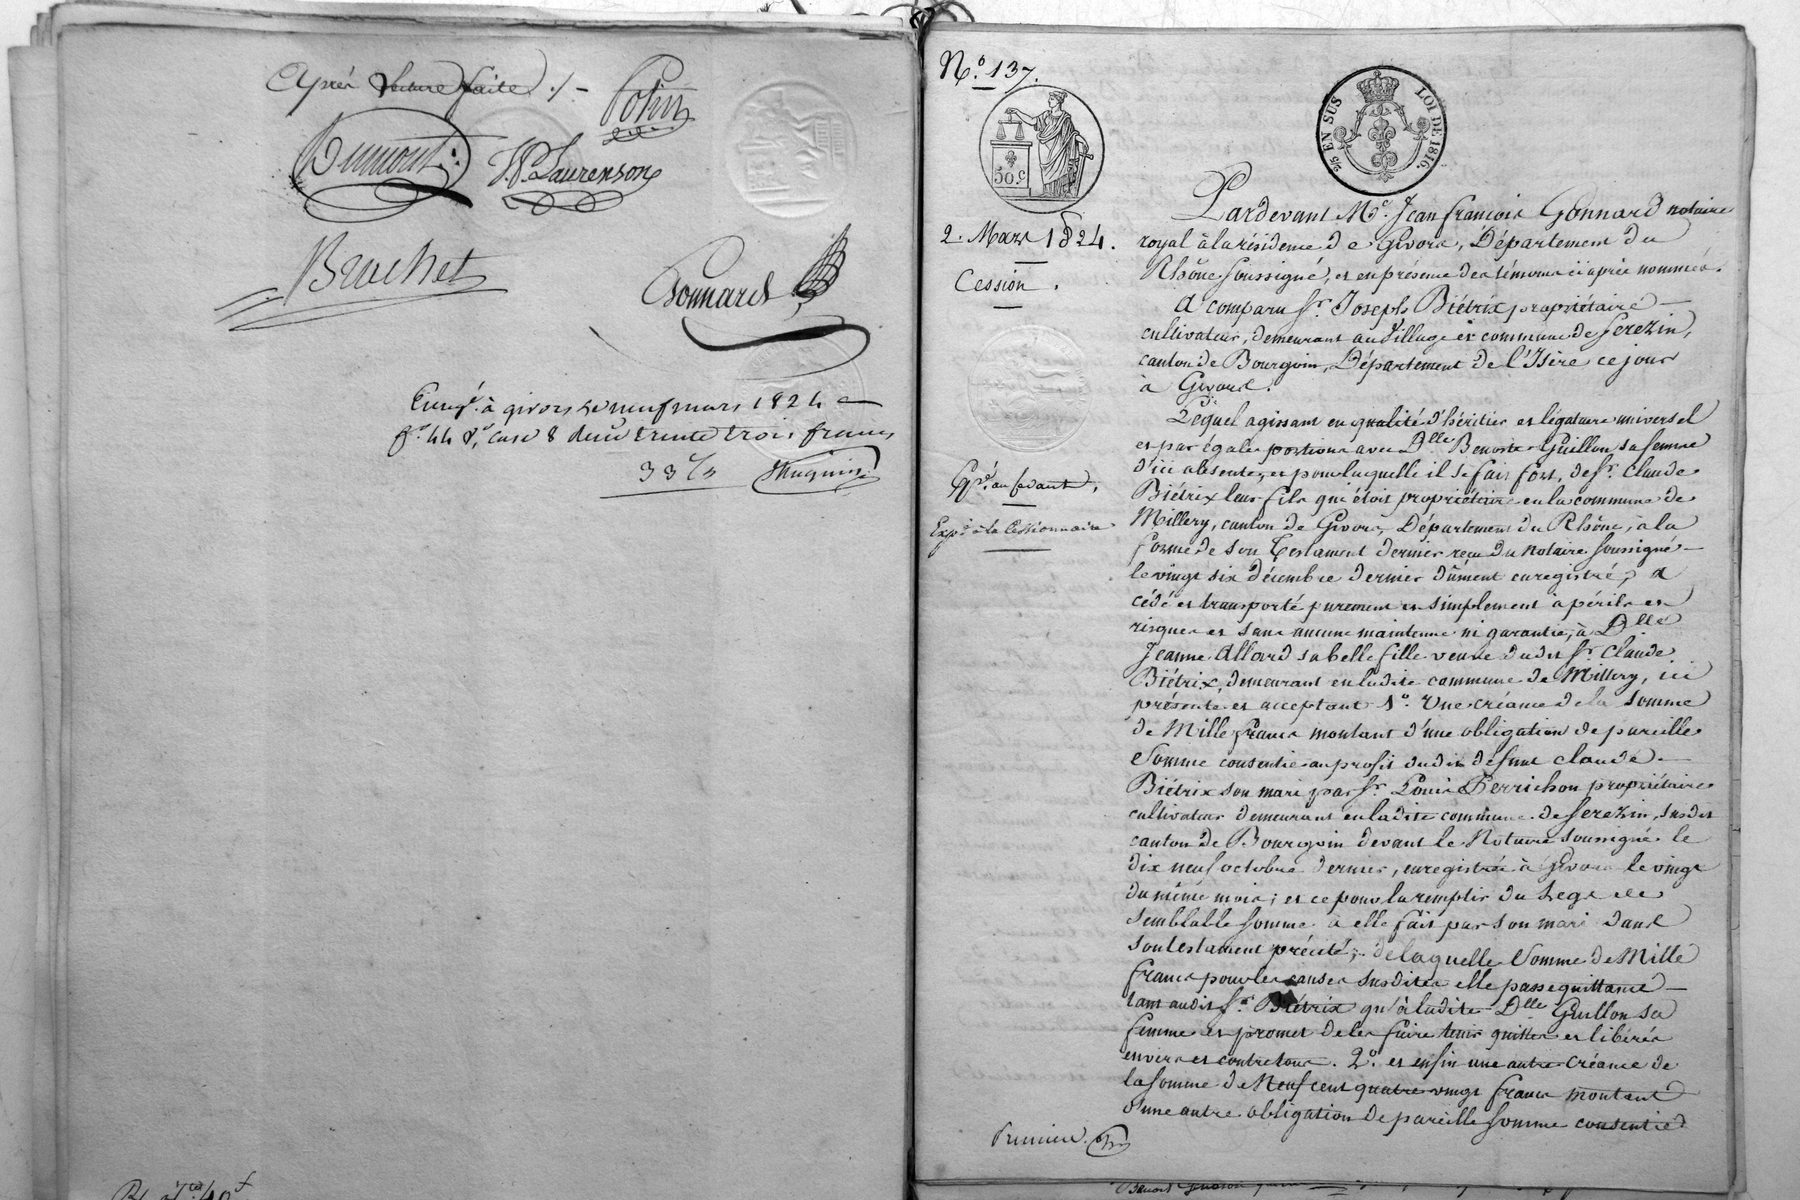 Après Lecture faite ./-
Potin
Dumont
J.P. Laurenson
Brachet
Gonnard
Enreg.é à givors le neuf mars 1824
f.o 44 v.o case 8 trente trois francs
33
N.o 137.
50 c.
2/5 EN SUS
LOI DE 1816.
2. Mars 1824.
Cession.
Exp.n à la Cessionnaire
Pardevant M.e Jean françois Gonnard notaire
royal à la résidence de Givors, Département du
Rhône soussigné, et en présence des témoins ci après nommés.
A comparu S.r Joseph Biétrix propriétaire
cultivateur, demeurant au Village et commune de Serezin,
canton de Bourgoin, Département de l'Isère ce jour
à Givors.
Lequel agissant en qualité d'héritier et légataire universel
et par égales portions avec D.lle Benoite Guillon, sa femme
d'ici absente, et pour laquelle il se fait fort, de S.r Claude
Biétrix leur fils qui étoit propriétaire en la commune de
Millery, canton de Givors, Département du Rhône, à la
forme de son Testament dernier reçu du notaire soussigné
le vingt six décembre dernier dûment enregistré, a
cédé et transporté purement et simplement à périls et
risques et sans aucune maintenue ni garantie, à D.lle
Jeanne Allard sa belle fille veuve dudit S.r Claude
Biétrix, demeurant en ladite commune de Millery, ici
présente et acceptant 1.o Une créance de la somme
de Mille francs montant d'une obligation de pareille
somme consentie au profit dudit defunt claude
Biétrix son mari par S.r Louis Perrichon propriétaire
cultivateur demeurant en ladite commune de Serezin, susdit
canton de Bourgoin devant le Notaire soussigné le
dix neuf octobre dernier, enregistrée à Givors le vingt
du même mois; et ce pour la remplir du Legs de
semblable somme à elle fait par son mari dans
son testament précité; de laquelle somme de Mille
francs pour les causes susdites elle passe quittance
tant audit S.r Biétrix qu'à ladite D.lle Guillon sa
femme et promet de les faire tenir quittes et libérés
envers et contre tous. 2.o et enfin une autre créance de
la somme de Neuf cent quatre vingt francs montant
d'une autre obligation de pareille somme consentie